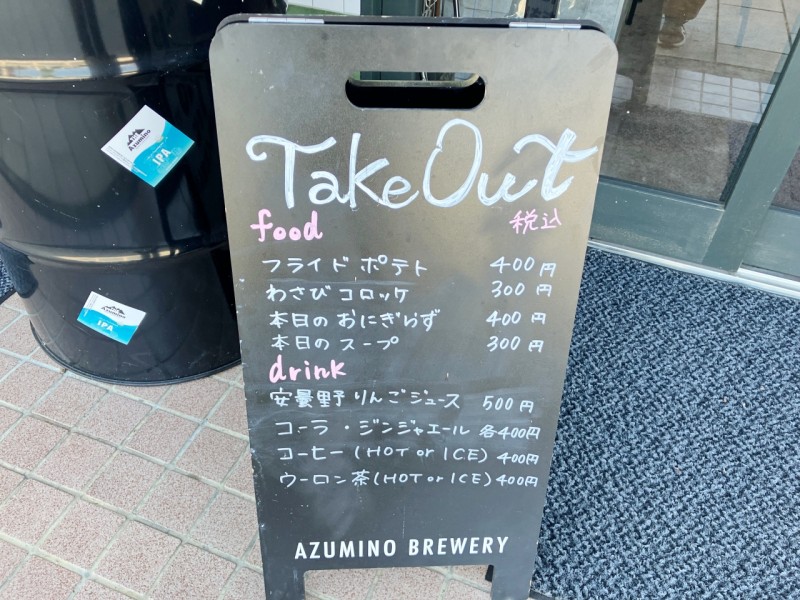 Take Out
food 税込
フライドポテト 400円
わさびコロッケ 300円
本日のおにぎらず 400円
本日のスープ 300円
drink
安曇野りんごジュース 500円
コーラ・ジンジャエール 各400円
コーヒー(HOT or ICE) 400円
ウーロン茶(HOT or ICE) 400円
AZUMINO BREWERY
Azumino
IPA
Azumino
IPA